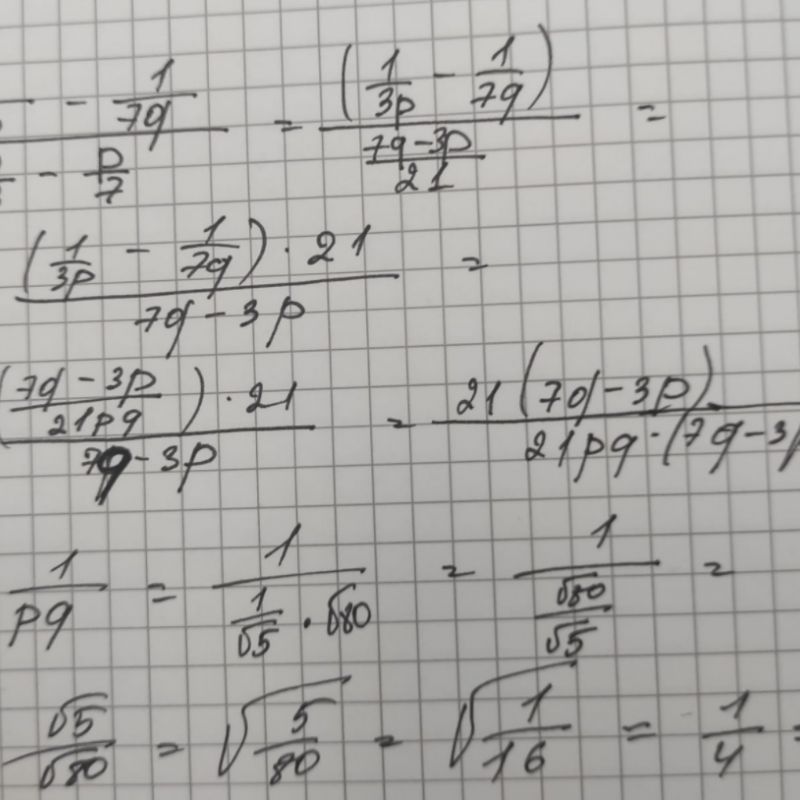 - 1/7q / - p/7 = (1/3p - 1/7q) / (7q-3p)/21 =
(1/3p - 1/7q) · 21 / 7q - 3p =
(7q - 3p / 21pq) · 21 / 7q - 3p = 21(7q-3p) / 21pq·(7q-3p
1/pq = 1 / (1/√5 · √80) = 1 / (√80/√5) =
√5/√80 = √(5/80) = √(1/16) = 1/4 =